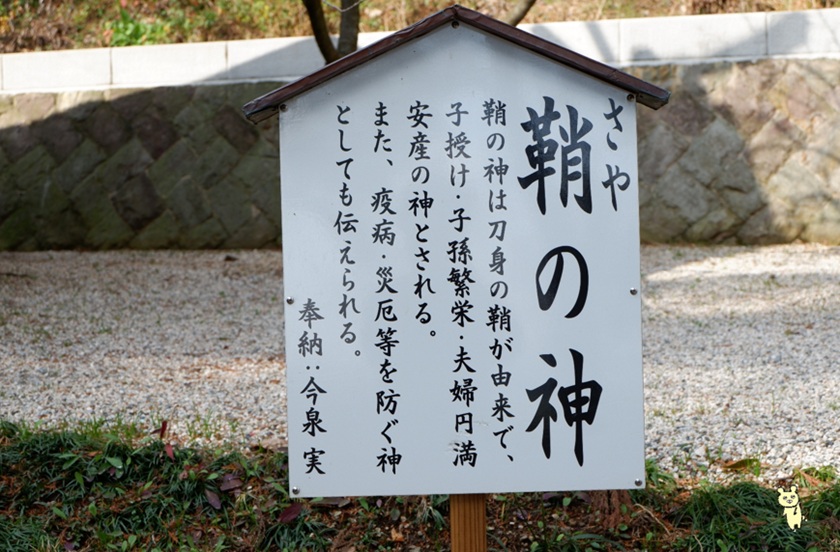 さや
鞘の神
鞘の神は刀身の鞘が由来で、
子授け・子孫繁栄・夫婦円満
安産の神とされる。
また、疫病・災厄等を防ぐ神
としても伝えられる。
奉納:今泉 実